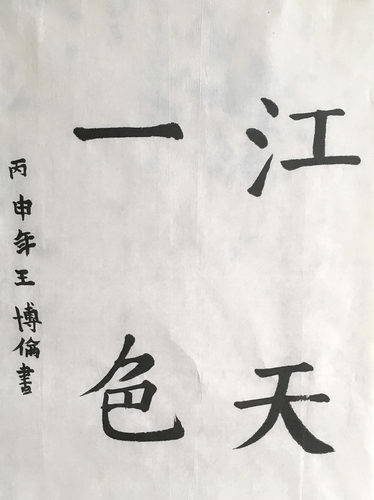 江天
一色
丙申年王博倫書